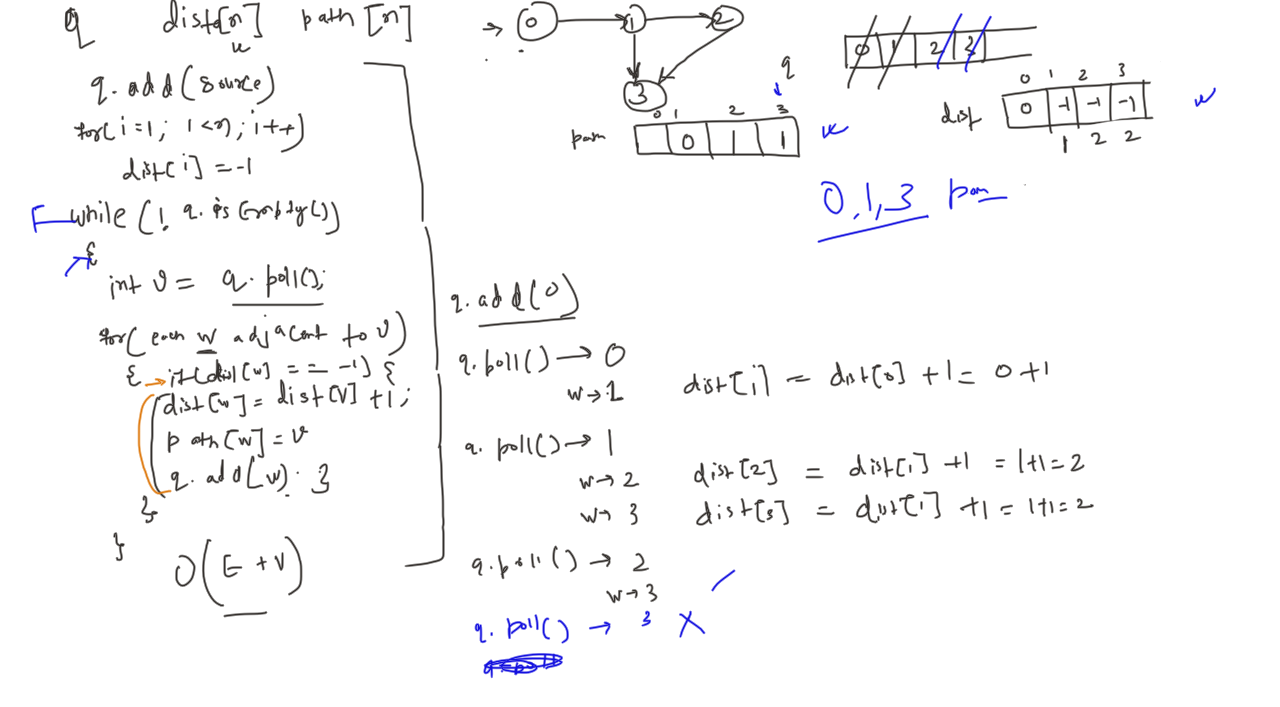 q dist[n] path[n]
q.add(source)
for(i=1; i<n; i++)
dist[i] = -1
while(! q.isEmpty())
{
int v = q.poll();
for(each w adjacent to v)
{ if(dist[w] == -1) {
dist[w] = dist[v] +1;
path[w] = v
q.add(w). }
}
}
O(E + V)
→ 0 1 2
3
q
0 1 2 3
path 0 1 1
0 1 2 3
0 1 2 3
dist 0 -1 -1 -1
1 2 2
0,1,3 path
q.add(0)
q.poll() → 0
w→1 dist[1] = dist[0] +1 = 0+1
q.poll() → 1
w→2 dist[2] = dist[1] +1 = 1+1=2
w→3 dist[3] = dist[1] +1 = 1+1=2
q.poll() → 2
w→3
q.poll() → 3 X